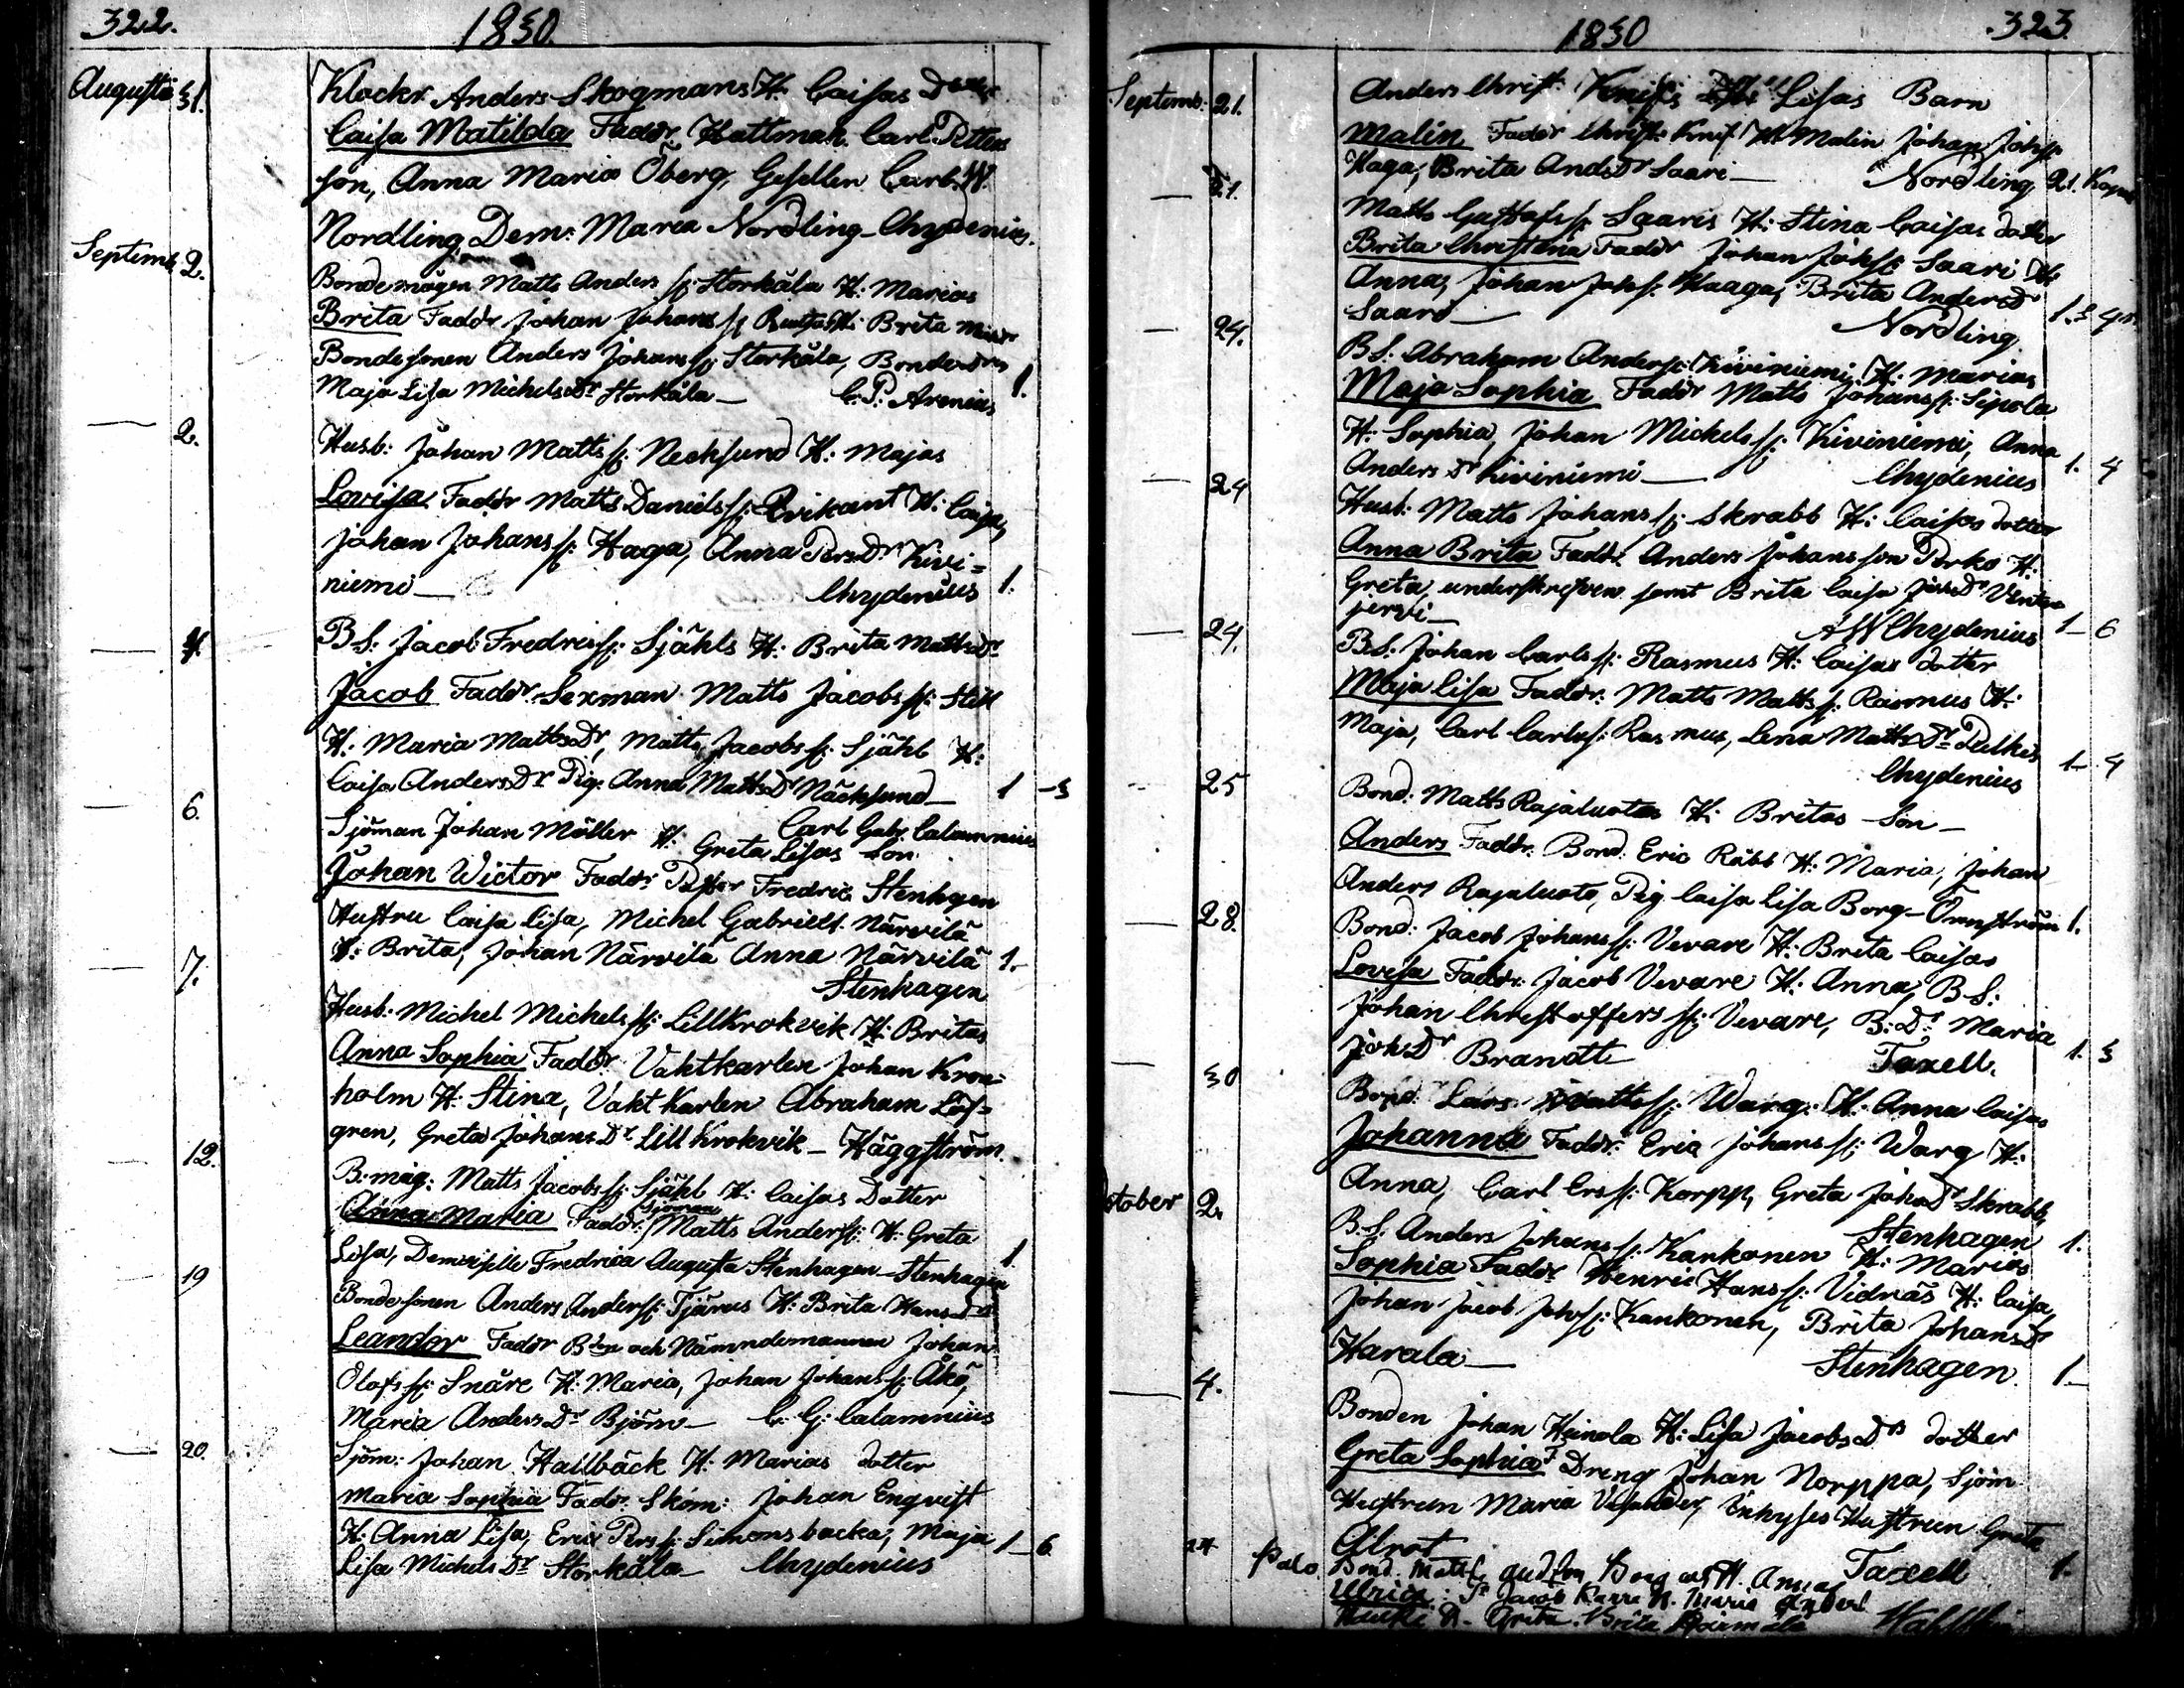 322. 1830.
Augusti 31. Klockr Anders Skogmans H. Caisas Dotter
Caisa Matilda Faddr. Hattmak. Carl Petters
son, Anna Maria Öberg, Gesellen Carl W.
Nordling, Dem: Maria Nordling - Chydenius.
Septemb. 2. Bondemågen Matts Anders s: Storkåla H: Marias
Brita Faddr Johan Johans s: H: Brita
Bondesonen Anders Johans s: Storkåla, Bonded
Maja Lisa Michels Dr Storkåla — C. P. Arenius 1.
— 2. Husb: Johan Matts s: Necksund H: Majas
Lovisa Faddr Matts Daniels s: Qvikant H: Caisa,
Johan Johans s: Haga, Anna Pers Dr Kivi=
niemi — Chydenius 1.
— 4. B.S: Jacob Fredrics s: Sjåhls H: Brita Matts Dr
Jacob Faddr Sexman Matts Jacobs s: Still
H: Maria Matts Dr, Matts Jacobs s: Sjåhl H:
Caisa Anders Dr Pig: Anna Matts Dr Näcksund — 1 - 3
Carl Gabr. Calamnius
— 6. Sjöman Johan Möller H: Greta Lisas Son
Johan Wictor Faddr Fredric Stenhagen
Hustru Caisa Lisa, Michel Gabriels Närvilä
H: Brita, Johan Närvilä Anna Närvilä 1.
Stenhagen
— 7. Husb: Michel Michels s: Lillkrokvik H: Britas
Anna Sophia Faddr: Vaktkarlen Johan Kron=
holm H: Stina, Vakt Karlen Abraham Löf=
gren, Greta Johans Dr Lill Krokvik — Häggström.
— 12. B:måg: Matts Jacobs s: Sjåhl H: Caisas Dotter
Anna Maria Faddr: Sjöman Matts Anders s: H: Greta
Lisa, Demoiselle Fredrica Augusta Stenhagen — Stenhagen 1
— 19 Bondesonen Anders Anders s: Tjärus H: Brita Hans Drs
Leander Faddr Bden och Nämndemannen Johan
Olofs s: Snåre H: Maria, Johan Johans s: Åkö,
Maria Anders Dr Björn — C. G: Calamnius
— 20. Sjöm: Johan Hallbäck H: Marias dotter
Maria Sophia Faddr: Skom: Johan Engvist
H: Anna Lisa, Eric Pers s: Simonsbacka, Maja 1 — 6.
Lisa Michels Dr Storkåla — Chydenius
1830 323.
Septemb. 21. Anders Christ: Knifs Lisas Barn
Malin Faddr Christ: Knif H: Malin Johan Johs s:
Haga, Brita Ands Dr Saari — Nordling 21.
— 21. Matts Gustafs s: Saaris H: Stina Caisas dotter
Brita Christina Faddr Johan Johs s: Saari H:
Anna, Johan Johs s: Haaga, Brita Anders Dr
Saari — Nordling 1.
— 24. B.S: Abraham Anders s: Kiviniemi H: Marias
Maja Sophia Faddr Matts Johans s: Sipola
H: Sophia, Johan Mickels s: Kiviniemi, Anna
Anders Dr Kiviniemi — Chydenius 1. 4
— 24 Husb: Matts Johans s: Skrabb H: Caisas dotter
Anna Brita Faddr: Anders Johansson Porko H:
Greta, underskrefven samt Brita Caisa Johs Dr Ventus
jervi — A W Chydenius 1 - 6
— 24. B.S: Johan Carls s: Rasmus H: Caisas dotter
Maja Lisa Faddr: Matts Matts s: Rasmus H:
Maja, Carl Carls s: Rasmus, Lena Matts Dr Pulkis
Chydenius 1 - 4
25 Bond: Matts Rajaluotos H: Britas Son —
Anders Faddr: Bond: Eric Råbb H: Maria, Johan
Anders Rajaluoto, Pig Caisa Lisa Borg — Örnström 1.
— 28. Bond: Jacob Johans s: Vevare H: Brita Caisas
Lovisa Faddr: Jacob Vevare H: Anna, B.S:
Johan Christoffers s: Vevare, B: Dr Maria
Joh: Dr Brandt — Taxell. 1. 3
— 30 Bond: Lars Matts s: Warg: H: Anna Caisas
Johanna Faddr: Eric Johans s: Warg H:
Anna, Carl Ers s: Korpp, Greta Johs Dr Skrabb,
Stenhagen 1.
October 2. B.S. Anders Johans s: Kankonen H: Marias
Sophia Faddr Henric Hans s: Vidnäs H: Caisa,
Johan Jacob Johs s: Kankonen, Brita Johans Dr
Harala — Stenhagen. 1 —
— 4. Bonden Johan Heinola H: Lisa Jacobs Drs dotter
Greta Sophia F Dreng Johan Norppa, Sjöm
Hustrun Maria Inhyses Hustrun Greta
Alrot Taxell 1.
Palo Bond. H. Annas
Ulrica Jacob H. Maria Anders
H. Greta. Brita